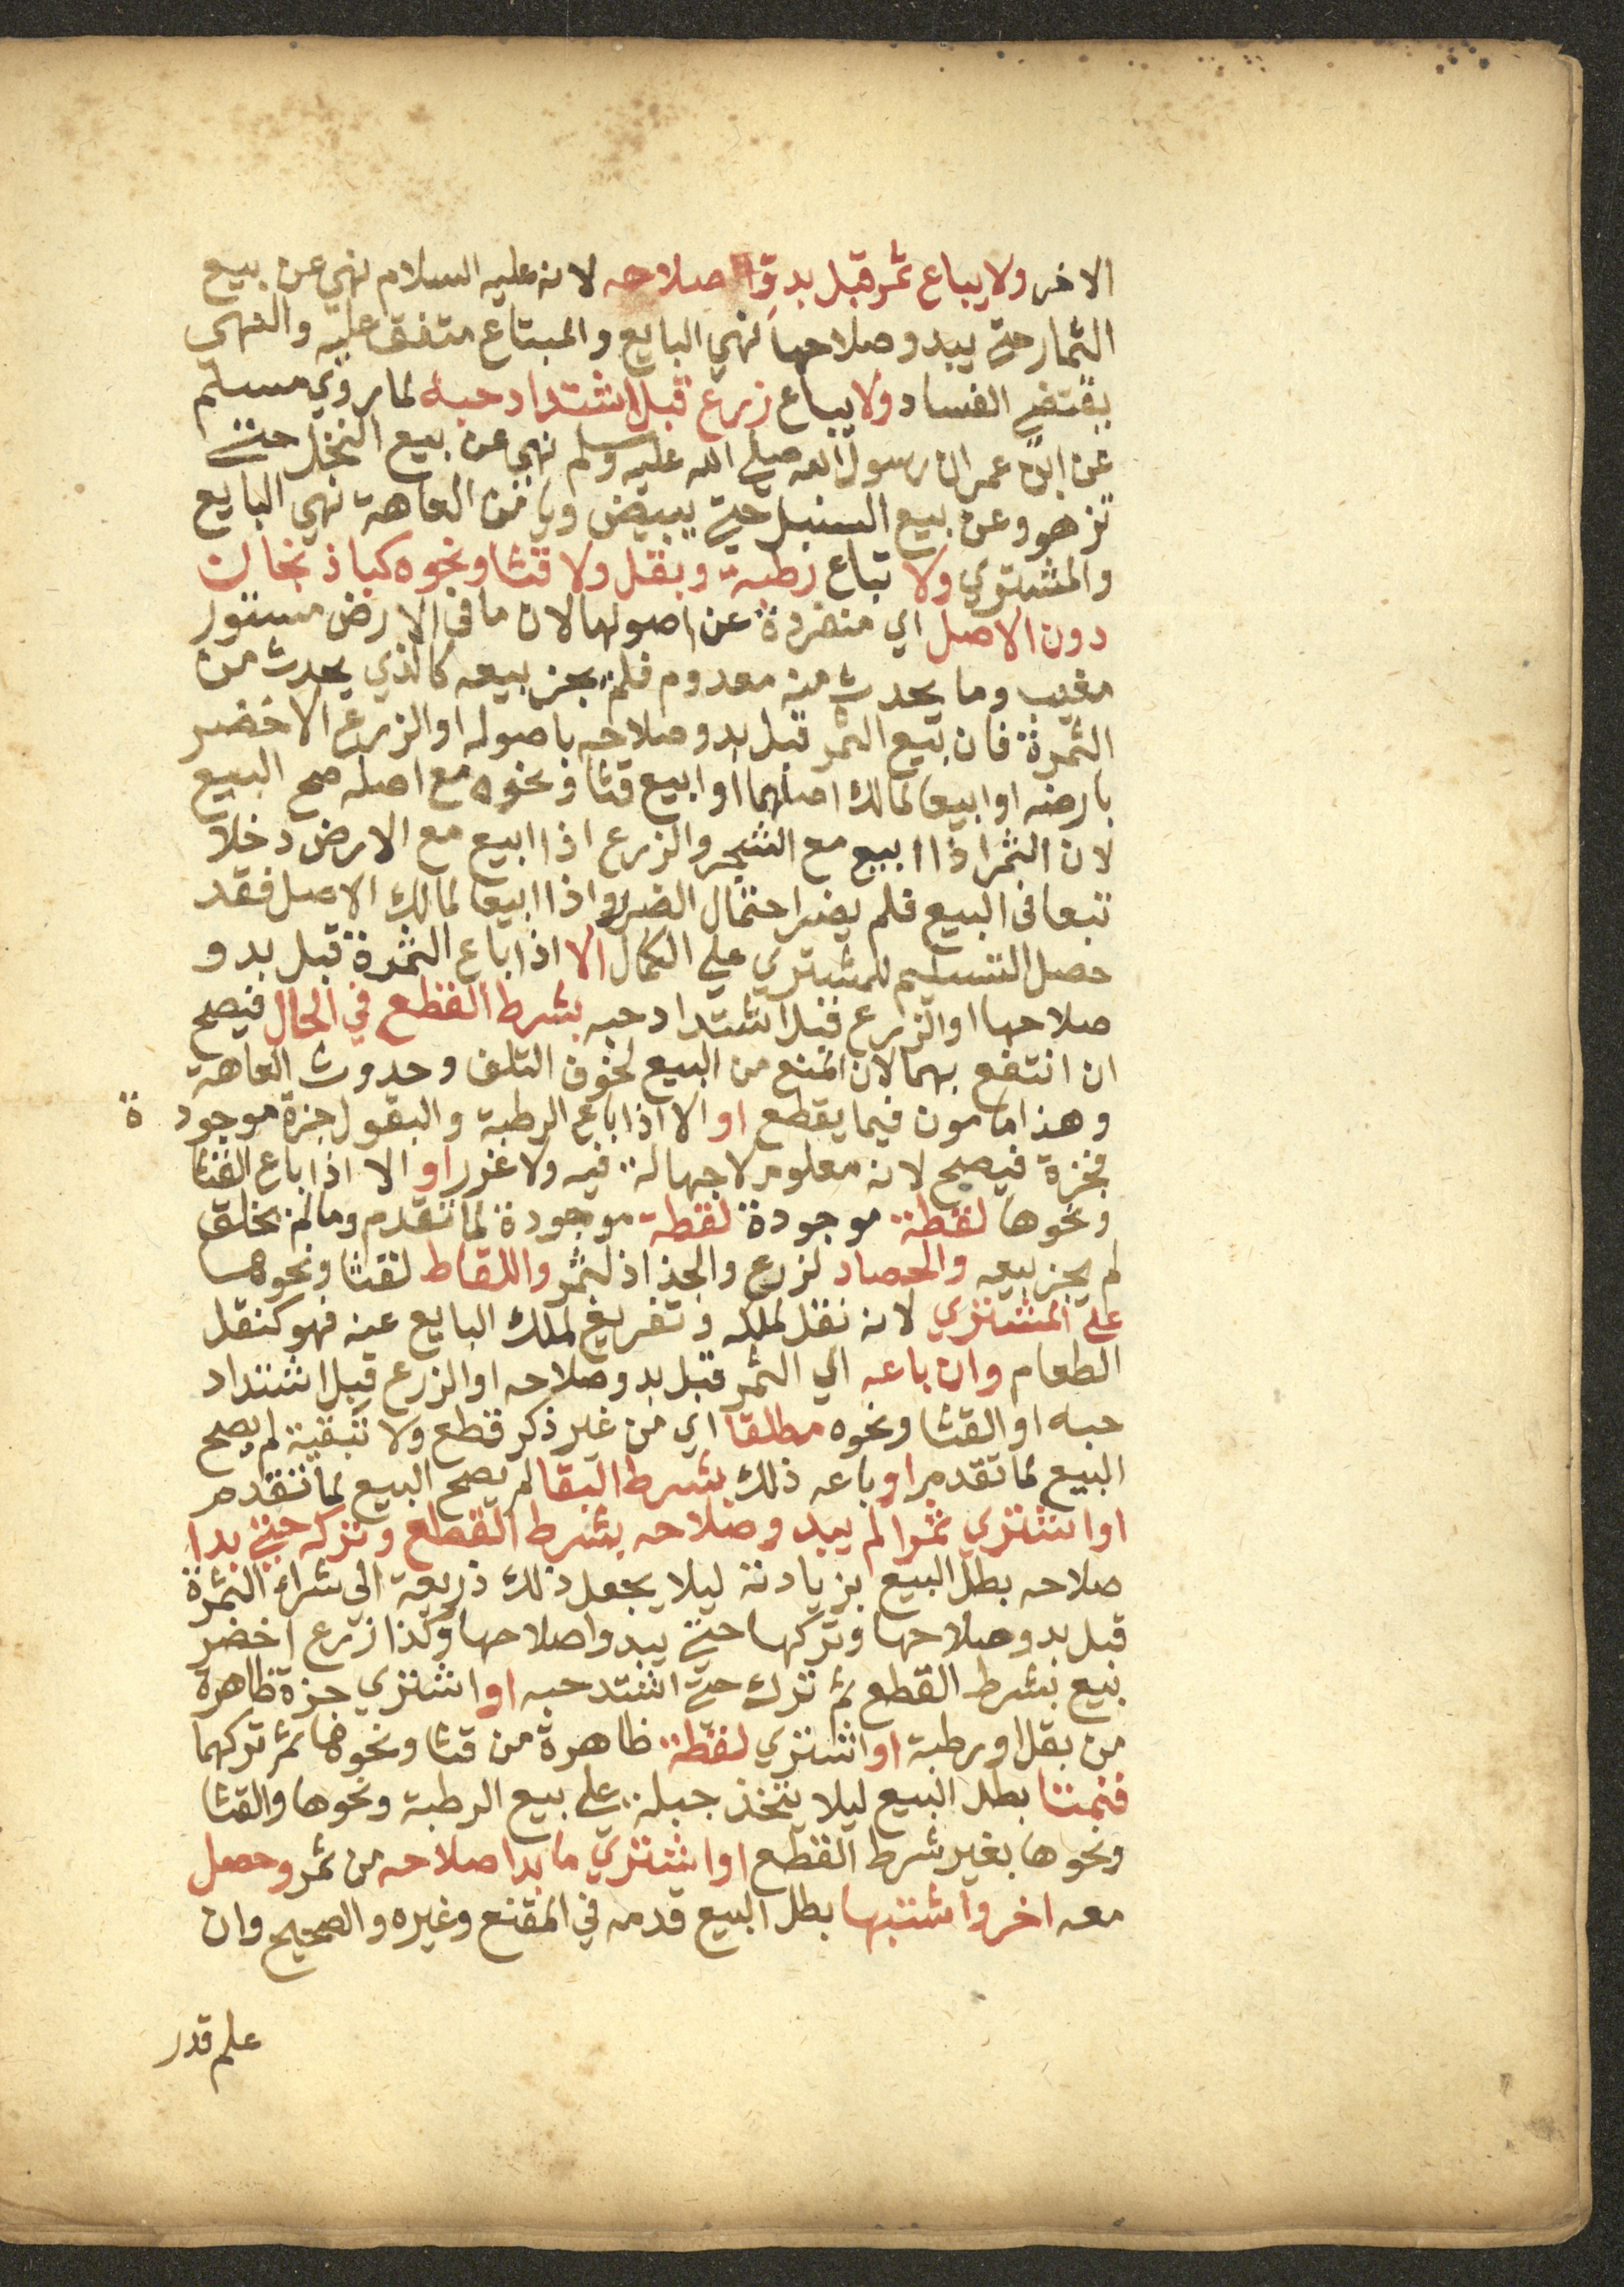 الاخر ولا يباع ثمر قبل بدو صلاحه لانه عليه السلام نهي عن بيع
الثمار حتي يبدو صلاحها نهي البايع والمبتاع متفق عليه والنهي
يقتضي الفساد ولا يباع زرع قبل اشتداد حبه لما روي مسلم
عن ابن عمر ان رسول الله صلي الله عليه وسلم نهي عن بيع النخل حتي
تزهو وعن بيع السنبل حتي يبيض ويامن العاهة نهي البايع
والمشتري ولا تباع رطبة وبقل ولا قثا ونحوه كباذنجان
دون الاصل اي منفردة عن اصولها لان ما في الارض مستور
مغيب وما يحدث منه معدوم فلم يجز بيعه كالذي يحدث من
الثمرة فان بيع الثمر قبل بدو صلاحه باصوله او الزرع الاخضر
بارضه او ابيعا لمالك اصلهما او ابيع قثا ونحوه مع اصله صح البيع
لان الثمر اذا ابيع مع الشجر والزرع اذا ابيع مع الارض دخلا
تبعا في البيع فلم يضر احتمال الضرر واذا ابيعا لمالك الاصل فقد
حصل التسليم للمشتري علي الكمال الا اذا باع الثمرة قبل بدو
صلاحها او الزرع قبل اشتداد حبه بشرط القطع في الحال فيصح
ان انتفع بهما لان المنع من البيع لخوف التلف وحدوث العاهة
وهذا مامون فيما يقطع او الا اذا باع الرطبة والبقول جزة موجودة
فجزة فيصح لانه معلوم لا جهالة فيه ولا غرر او الا اذا باع القثا
ونحوها لقطة موجودة لقطة موجودة لما تقدم وما لم يخلق
لم يجز بيعه والحصاد لزرع والجذاذ لثمر واللقاط لقثا ونحوها
علي المشتري لانه نقل لملكه وتفريغ لملك البايع عنه فهو كنقل
الطعام وان باعه اي الثمر قبل بدو صلاحه او الزرع قبل اشتداد
حبه او القثا ونحوه مطلقا اي من غير ذكر قطع ولا تبقية لم يصح
البيع لما تقدم او باعه ذلك بشرط البقا لم يصح البيع لما تقدم
او اشتري ثمرا لم يبدو صلاحه بشرط القطع وتركه حتي بدا
صلاحه بطل البيع بزيادته ليلا يجعل ذلك ذريعة الي شراء الثمرة
قبل بدو صلاحها وتركها حتي يبدوا صلاحها وكذا زرع اخضر
بيع بشرط القطع ثم ترك حتي اشتد حبه او اشتري جزة ظاهرة
من بقل او رطبة او اشتري لقطة ظاهرة من قثا ونحوها ثم تركهما
فنمتا بطل البيع ليلا يتخذ حيلة علي بيع الرطبة ونحوها والقثا
ونحوها بغير شرط القطع او اشتري ما بدا صلاحه من ثمر وحصل
معه اخر واشتبها بطل البيع قدمه في المقنع وغيره والصحيح وان
علم قدر